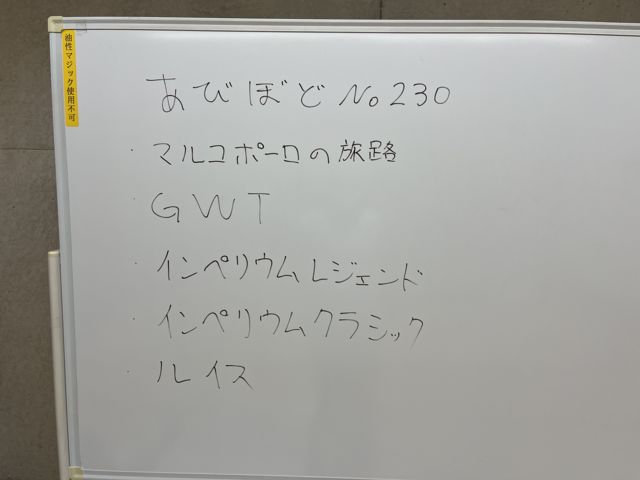 油性マジック使用不可
あびぼど No230
・マルコポーロの旅路
・GWT
・インペリウムレジェンド
・インペリウムクラシック
・ルイス